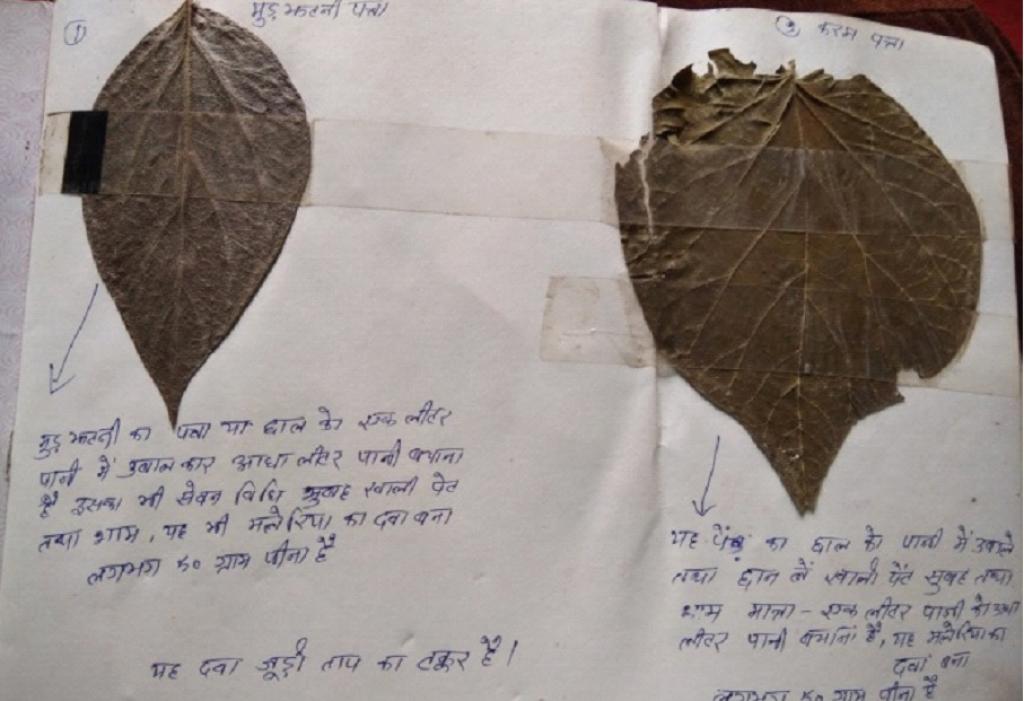 ① मुड़ झटनी पत्ता
मुड़ झटनी का पत्ता या छाल को एक लीटर
पानी में उबाल कार आधा लीटर पानी बचाना
है इसका भी सेवन विधि सुबह खाली पेट
तथा शाम, यह भी मलेरिया का दवा बना
लगभग ५० ग्राम पीना है
यह दवा जूड़ी ताप का टक्कर है।
② करम पत्ता
यह पेड़ का छाल को पानी में उबाले
तथा छान लें खाली पेट सुबह तथा
शाम मात्रा - एक लीटर पानी को आधा
लीटर पानी बचाना है, यह मलेरिया का
दवा बना
लगभग ५० ग्राम पीना है